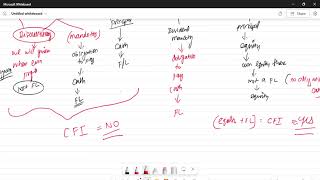 Microsoft Whiteboard
Untitled whiteboard
Discretionary
(mandatory)
principal
Dividend
mandatory
principal
we will given
when earn
profit
obligation
to pay
cash
F/L
obligation
to
pay
cash
equity
own equity share
not FL
cash
FL
FL
not a FL
equity
CFI = NO
(equity + FL) = CFI = yes